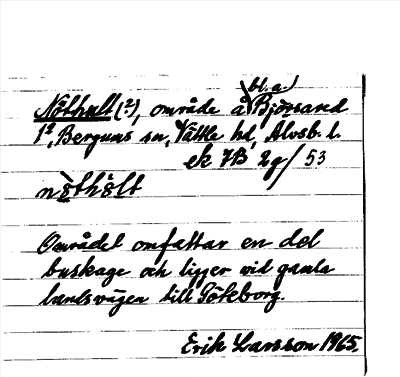 bl.a
Nöthult (?), område å Björsared
1², Bergums sn, Vättle hd, Älvsb. l.
ek 7B 2g/53
nö̀thùlt
Området omfattar en del
buskage och ligger vid gamla
landsvägen till Göteborg.
Erik Larsson 1965.